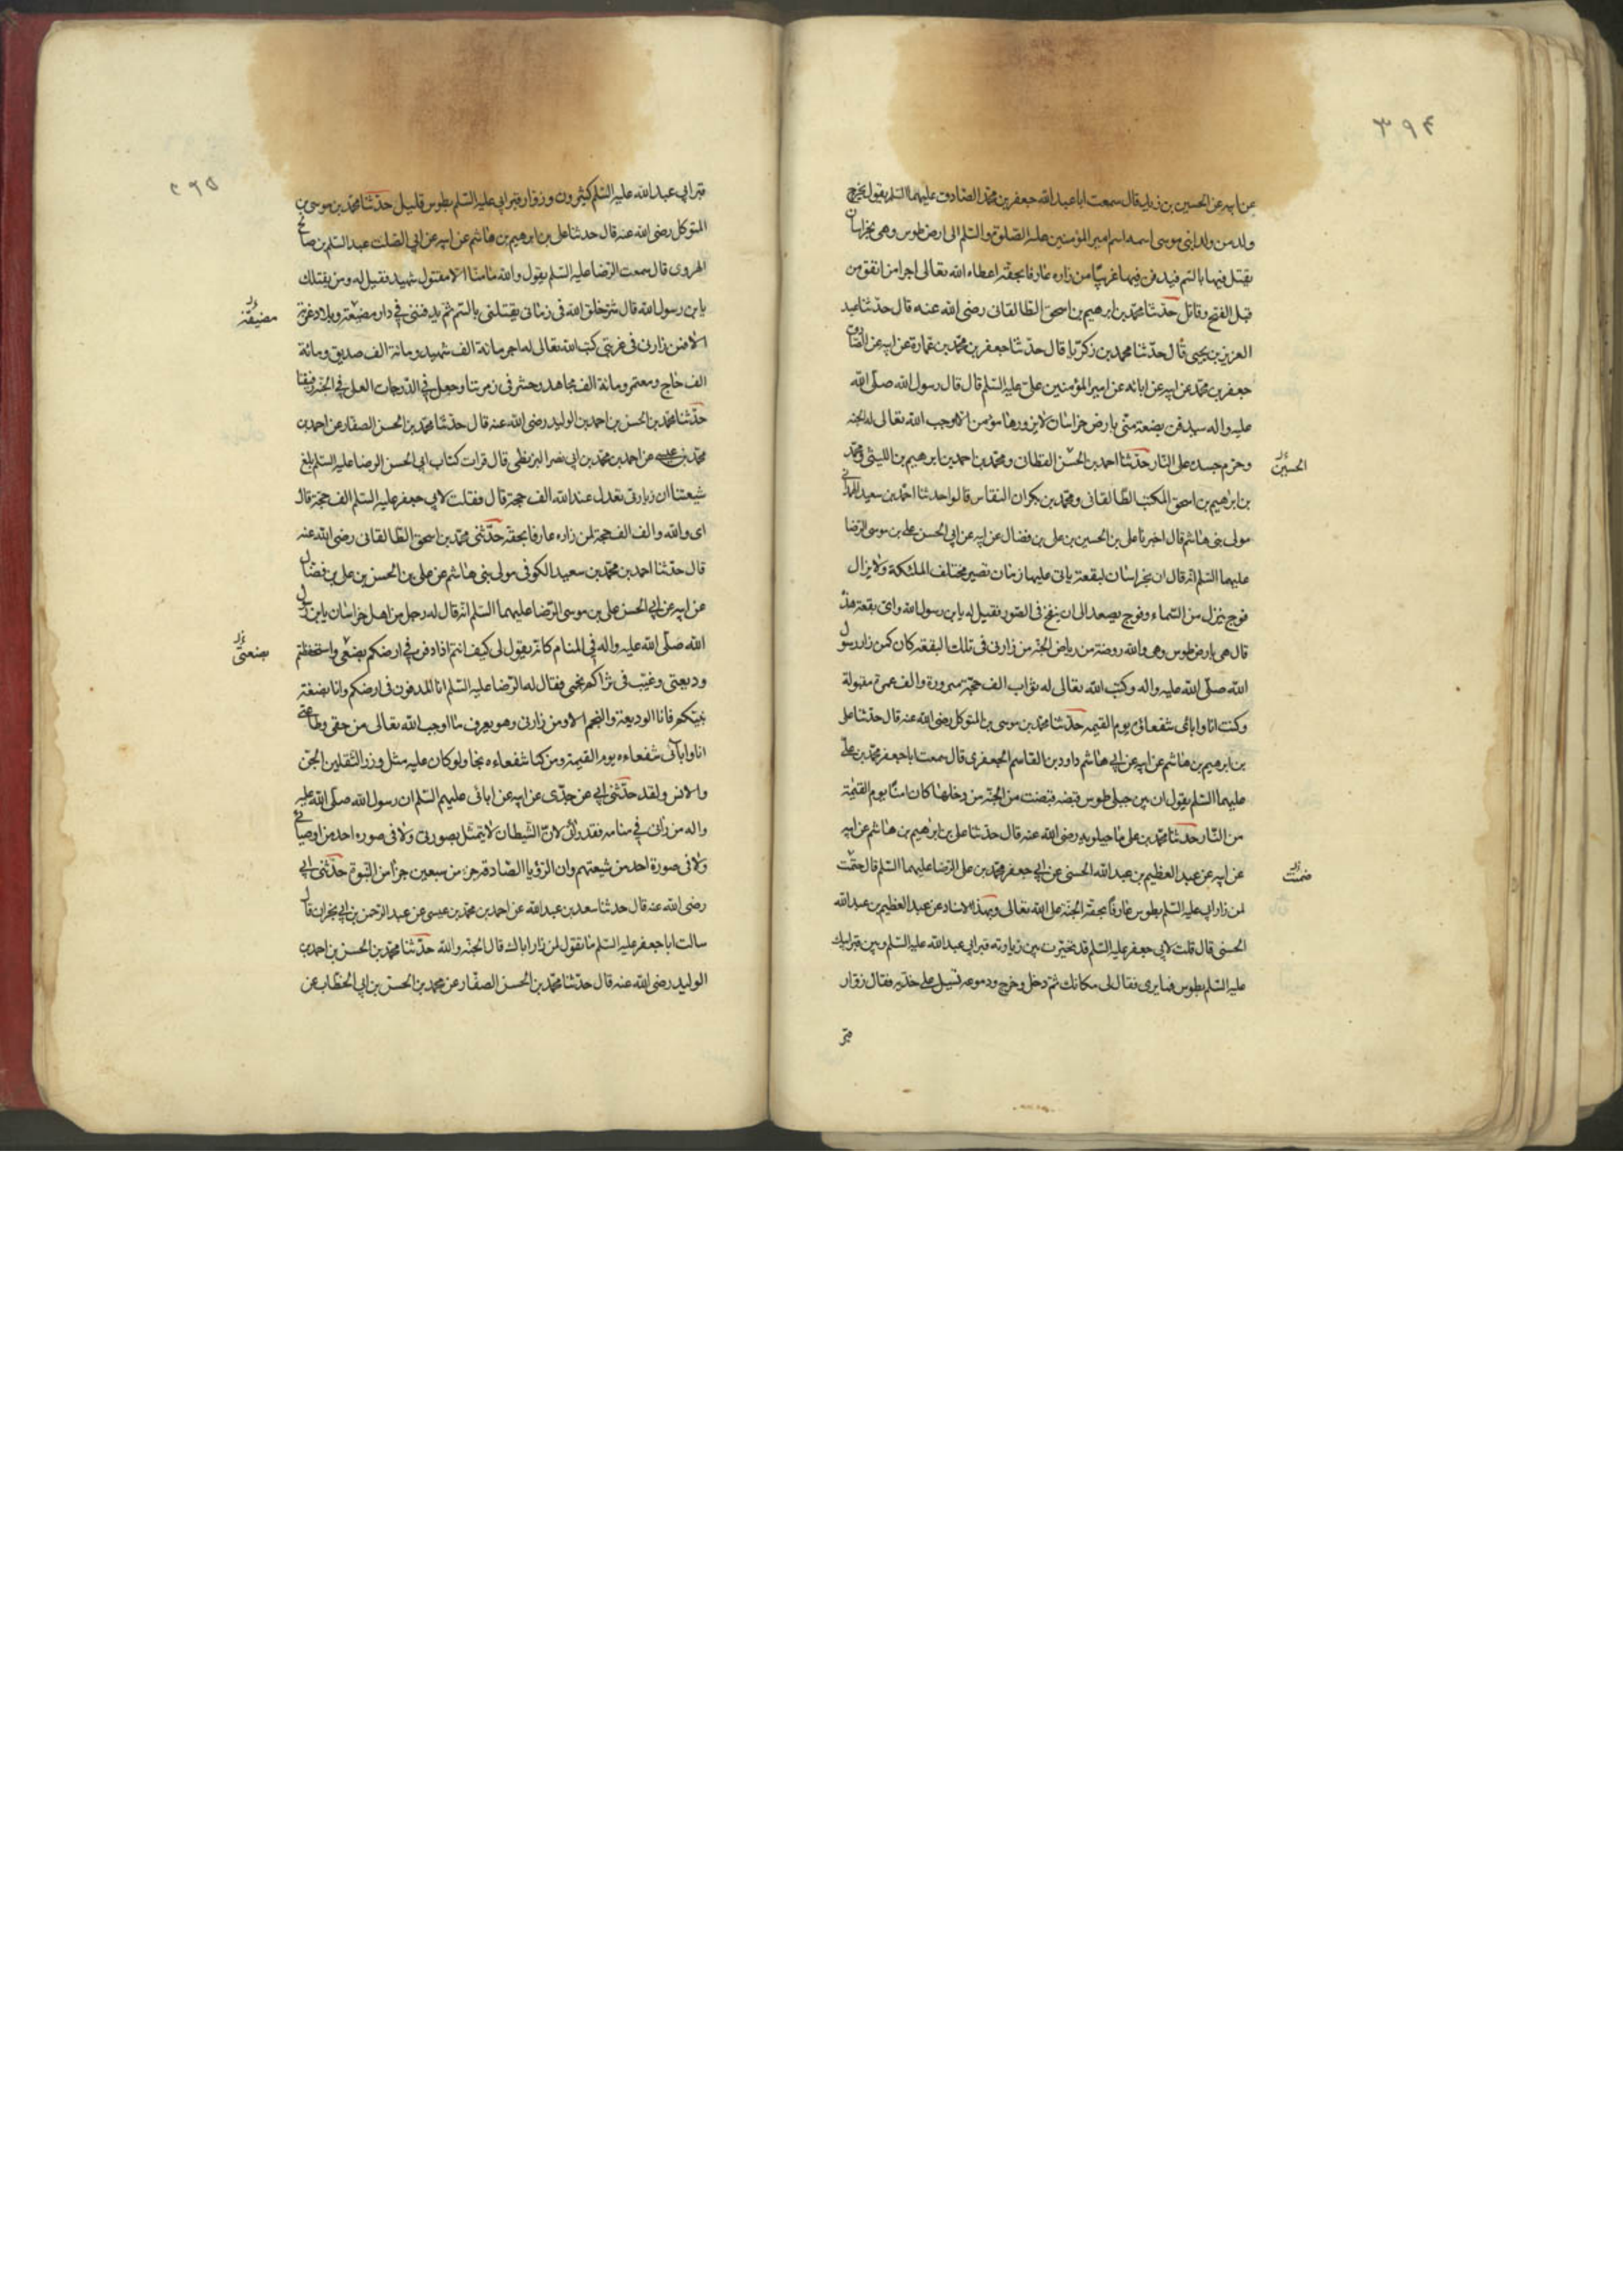 ٣٩٤
عن ابيه عن الحسين بن زيد قال سمعت ابا عبد الله جعفر بن محمد الصادق عليهما السلم يقول يخرج
ولد من ولد ابنى موسى اسمه اسم امير المؤمنين عليه الصلوة والسلم الى ارض طوس وهى بخراسان
يقتل فيها بالسم فيدفن فيها غريبا من زاره عارفا بحقه اعطاه الله تعالى اجر من انفق من
قبل الفتح وقاتل حدثنا محمد بن ابرهيم بن اسحق الطالقانى رضى الله عنه قال حدثنا عبد
العزيز بن يحيى قال حدثنا محمد بن زكريا قال حدثنا جعفر بن محمد بن عمارة عن ابيه عن الصادق
جعفر بن محمد عن ابيه عن ابائه عن امير المؤمنين على عليه السلم قال قال رسول الله صلى الله
عليه واله سيدفن بضعة منى بارض خراسان لا يزورها مؤمن الا اوجب الله تعالى له الجنة
وحرم جسده على النار حدثنا احمد بن الحسن القطان ومحمد بن احمد بن ابرهيم بن الليثى ومحمد
الحسين
بن ابرهيم بن اسحق المكتب الطالقانى ومحمد بن بكران النقاس قالوا حدثنا احمد بن سعيد الهمدانى
مولى بنى هاشم قال اخبرنا على بن الحسين بن على بن فضال عن ابيه عن ابى الحسن على بن موسى الرضا
عليهما السلم انه قال ان بخراسان لبقعة ياتى عليها زمان تصير مختلف الملئكة ولا يزال
فوج ينزل من السماء وفوج يصعد الى ان ينفخ فى الصور فقيل له يا بن رسول الله واى بقعة هذه
قال هى بارض طوس وهى والله روضة من رياض الجنة من زارنى فى تلك البقعة كان كمن زار رسول
الله صلى الله عليه واله وكتب الله تعالى له ثواب الف حجة مبرورة والف عمرة مقبولة
وكنت انا وابائى شفعاؤه يوم القيمه حدثنا محمد بن موسى بن المتوكل رضى الله عنه قال حدثنا على
بن ابرهيم بن هاشم عن ابيه عن ابى هاشم داود بن القاسم الجعفرى قال سمعت ابا جعفر محمد بن على
عليهما السلم يقول ان بين جبلى طوس قبضه قبضت من الجنة من دخلها كان امنا يوم القيمة
من النار حدثنا محمد بن على ماجيلويه رضى الله عنه قال حدثنا على بن ابرهيم بن هاشم عن ابيه
عن ابيه عن عبد العظيم بن عبد الله الحسنى عن ابى جعفر محمد بن على الرضا عليهما السلم قال حتمت
ضمنت
لمن زار ابى عليه السلم بطوس عارفا بحقه الجنة على الله تعالى وبهذا الاسناد عن عبد العظيم بن عبد الله
الحسنى قال قلت لابى جعفر عليه السلم قد تحيرت بين زيارته قبر ابى عبد الله عليه السلم وبين قبر ابيك
عليه السلم بطوس فما يرى فقال لى مكانك ثم دخل وخرج ودموعه تسيل على خديه فقال زوار
قبر
٣٩٥
قبر ابى عبد الله عليه السلم كثيرون وزوار قبر ابى عليه السلم بطوس قليل حدثنا محمد بن موسى بن
المتوكل رضى الله عنه قال حدثنا على بن ابرهيم بن هاشم عن ابيه عن ابى الصلت عبد السلم بن صالح
الهروى قال سمعت الرضا عليه السلم يقول والله ما منا الا مقتول شهيد فقيل له ومن يقتلك
يا بن رسول الله قال شر خلق الله فى زمانى يقتلنى بالسم ثم يدفننى فى دار مضيعة وبلاد غربة
مضيقة
الا فمن زارنى فى غربتى كتب الله تعالى له اجر مائة الف شهيد ومائة الف صديق ومائة
الف حاج ومعتمر ومائة الف مجاهد وحشر فى زمرتنا وجعل فى الدرجات العلى فى الجنة رفيقنا
حدثنا محمد بن الحسن بن احمد بن الوليد رضى الله عنه قال حدثنا محمد بن الحسن الصفار عن احمد بن
محمد بن عيسى عن احمد بن محمد بن ابى نصر البزنطى قال قرات كتاب ابى الحسن الرضا عليه السلم ابلغ
شيعتنا ان زيارتى تعدل عند الله الف حجة قال فقلت لابى جعفر عليه السلم الف حجة قال
اى والله والف الف حجة لمن زاره عارفا بحقه حدثنى محمد بن اسحق الطالقانى رضى الله عنه
قال حدثنا احمد بن محمد بن سعيد الكوفى مولى بنى هاشم عن على بن الحسن بن على بن فضال
عن ابيه عن ابى الحسن على بن موسى الرضا عليهما السلم انه قال له رجل من اهل خراسان يا بن رسول
الله صلى الله عليه واله فى المنام كانه يقول لى كيف انتم اذا دفن فى ارضكم بضعى واستحفظتم
بضعتى
وديعتى وغيب فى ثراكم نجمى فقال له الرضا عليه السلم انا المدفون فى ارضكم وانا بضعة
نبيكم فانا الوديعة والنجم الا ومن زارنى وهو يعرف ما اوجب الله تعالى من حقى وطاعتى
انا وابائى شفعاءه يوم القيمة ومن كنا شفعاءه نجا ولو كان عليه مثل وزر الثقلين الجن
والانس ولقد حدثنى ابى عن جدى عن ابيه عن ابائى عليهم السلم ان رسول الله صلى الله عليه
واله من رانى فى منامه فقد رانى لان الشيطان لا يتمثل بصورتى ولا فى صوره احد من اوصيائى
ولا فى صورة احد من شيعتهم وان الرؤيا الصادقة جزء من سبعين جزا من النبوة حدثنى ابى
رضى الله عنه قال حدثنا سعد بن عبد الله عن احمد بن محمد بن عيسى عن عبد الرحمن بن ابى نجران قال
سالت ابا جعفر عليه السلم ما تقول لمن زار اباك قال الجنة والله حدثنا محمد بن الحسن بن احمد بن
الوليد رضى الله عنه قال حدثنا محمد بن الحسن الصفار عن محمد بن الحسن بن ابى الخطاب عن